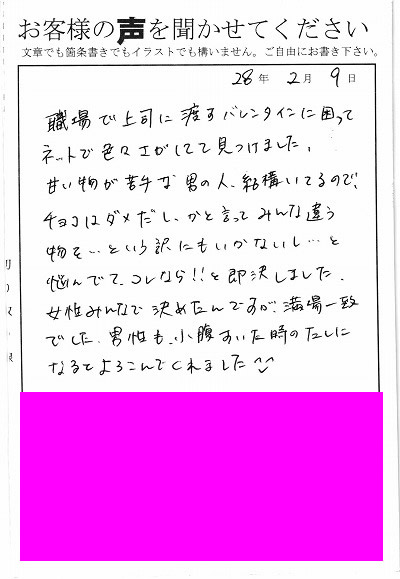 お客様の声を聞かせてください
文章でも箇条書きでもイラストでも構いません。ご自由にお書き下さい。
28年 2月 9日
職場で上司に渡すバレンタインに困って
ネットで色々さがしてて見つけました。
甘い物が苦手な男の人、結構いてるので、
チョコはダメだし、かと言ってみんな違う
物を…という訳にもいかないし…と
悩んでて、コレなら!!と即決しました。
女性みんなで決めたんですが、満場一致
でした。男性も、小腹すいた時のたしに
なるとよろこんでくれました